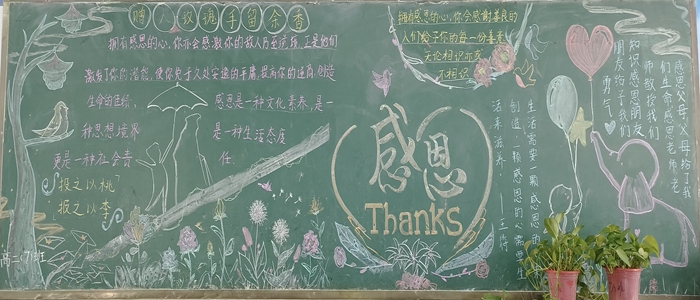 赠人玫瑰手留余香
拥有感恩的心,你亦会感激你的敌人乃至流残,正是他们
激发了你的潜能,使你免于久处安逸的平庸,提高你的
生命的
感恩是一种文化素养,是一
种思想境界
是一种生活态度
更是一种社会责
任.
投之以桃
报之以李
高二(7)班
拥有感恩的心,你会感谢善良的
人们给予你的每一份善意
无论相识亦或
不相识
感恩
Thanks
生活需要一颗感恩的心来
创造,一颗感恩的心需要生
活来滋养.
感恩父母,父母给予我
们生命感恩老师,老
师教授我们
知识感恩朋友
朋友给予我们
勇气